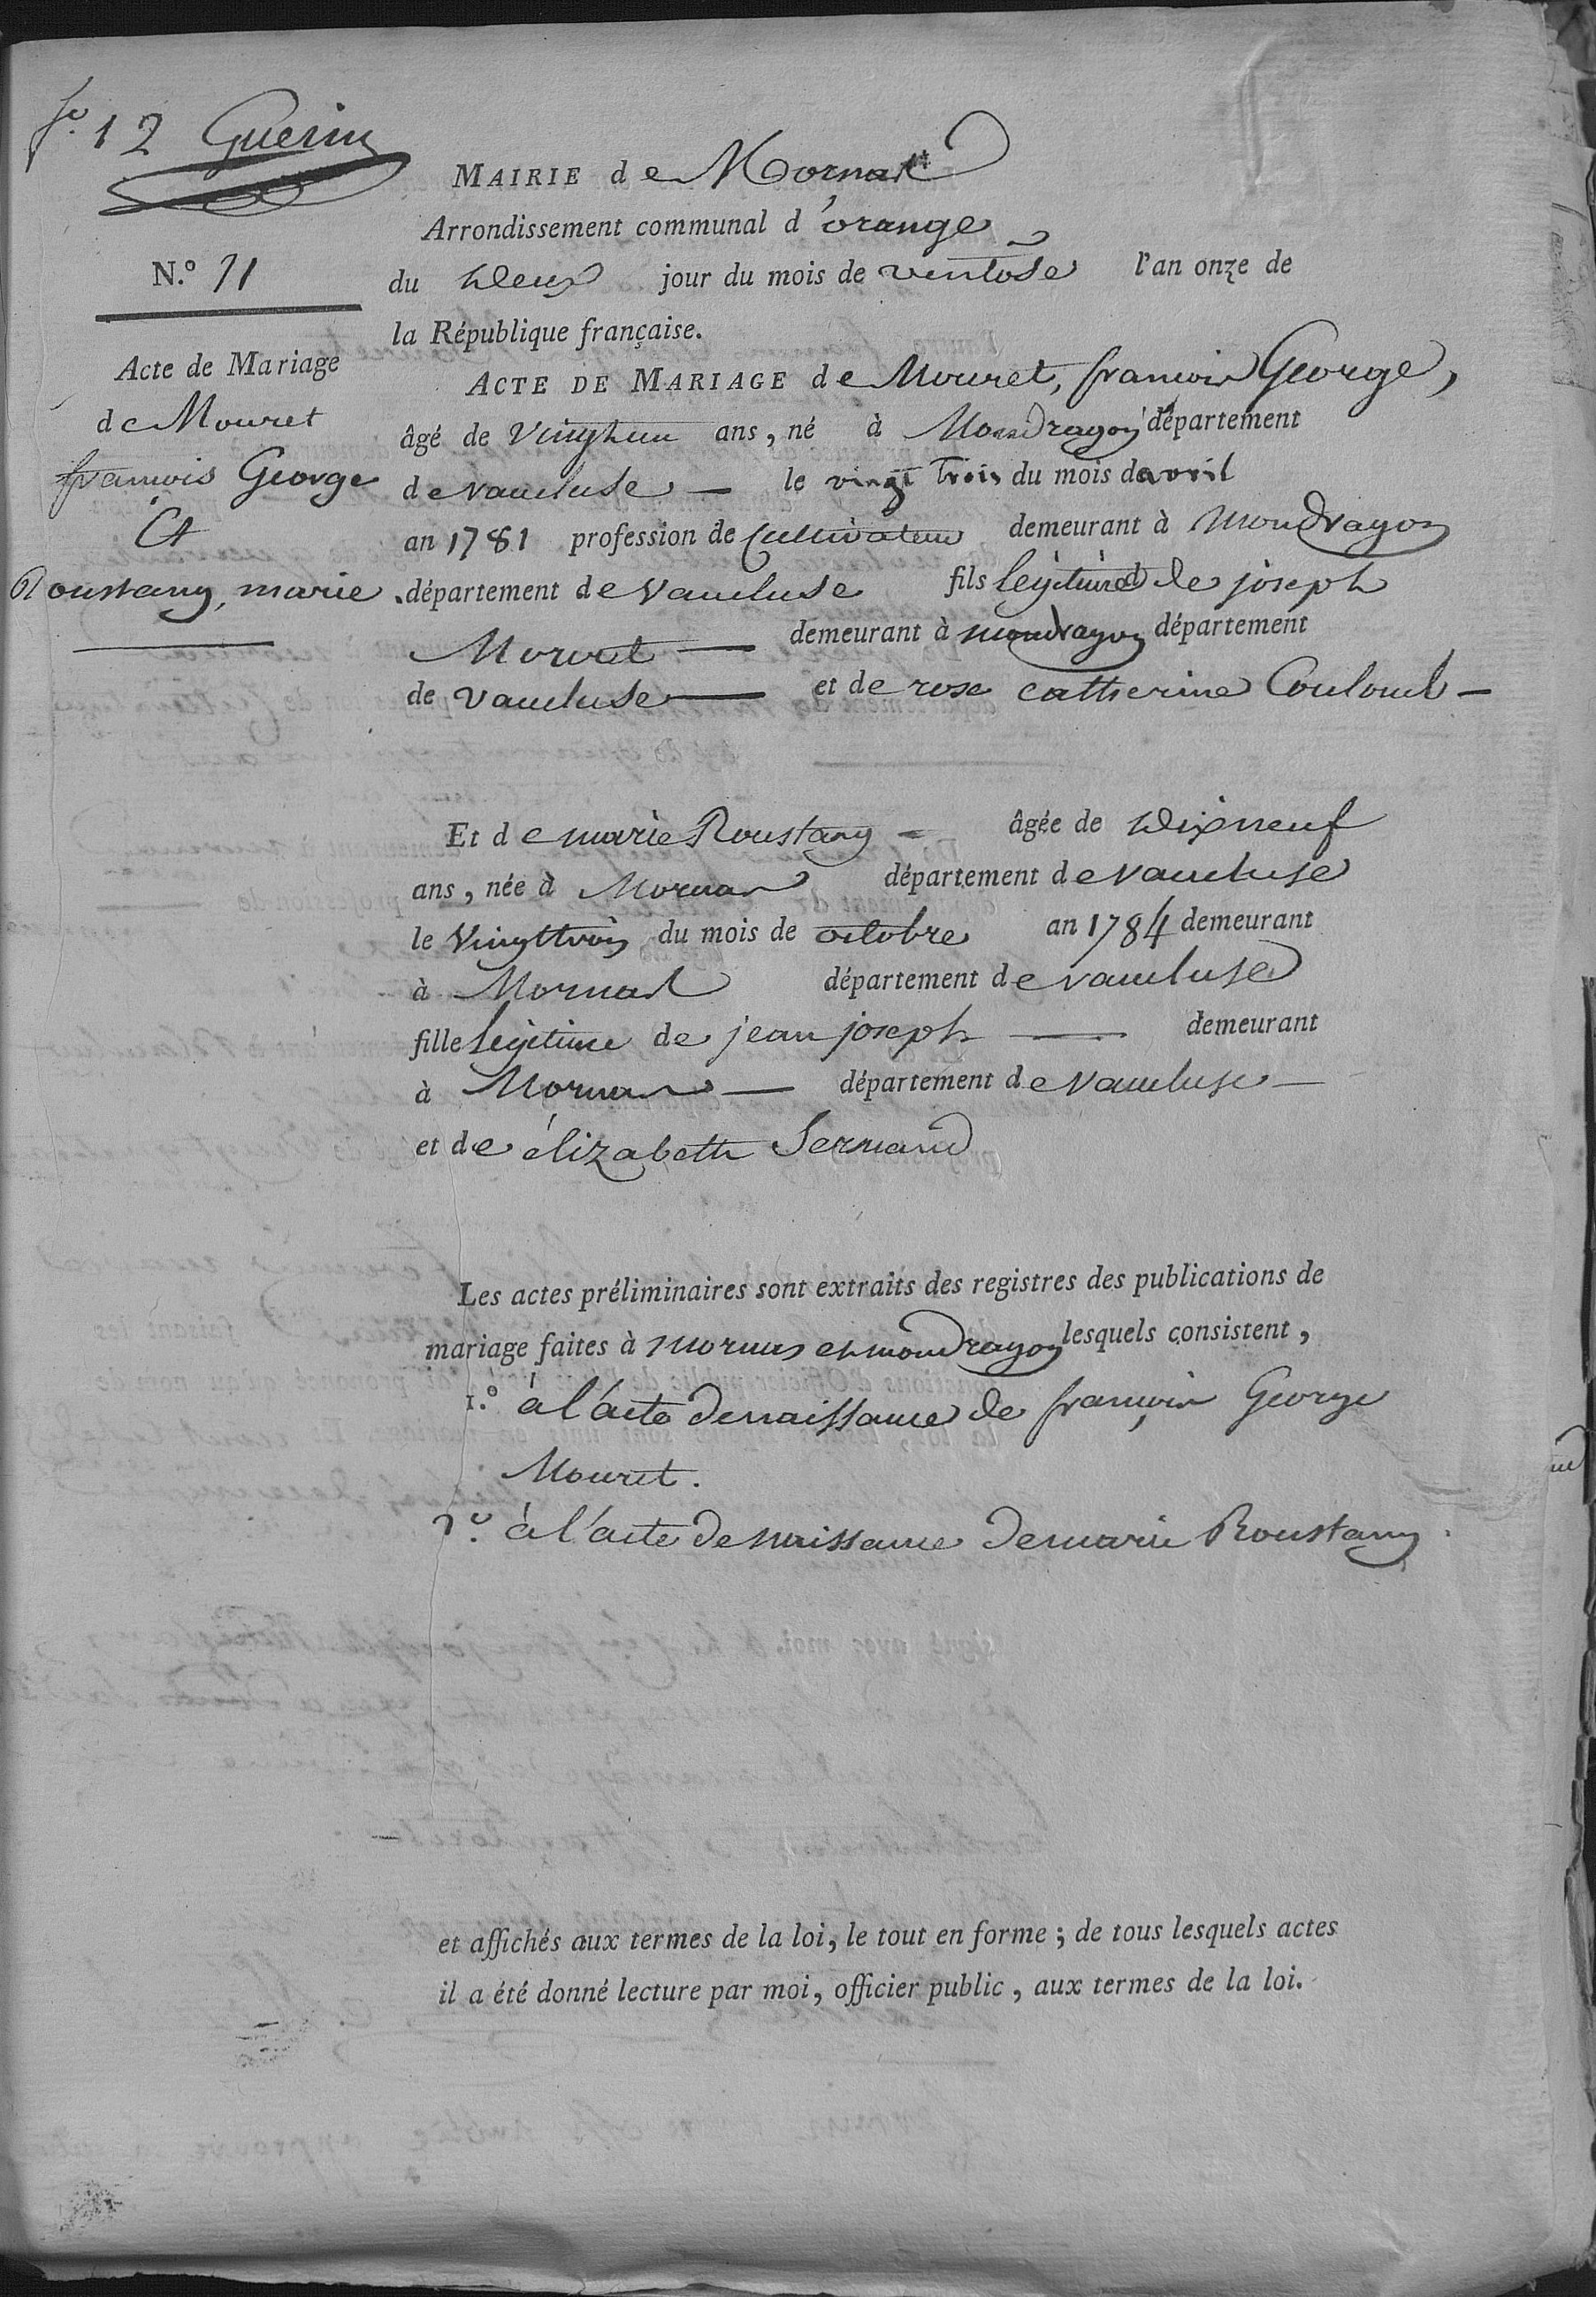 fo. 12 Guerin
MAIRIE de Mornas
Arrondissement communal d'orange
N.° 11
du deux jour du mois de ventose l'an onze de
la République française.
Acte de Mariage
de Mouret
francois George
Et
Roustang, marie
ACTE DE MARIAGE de Mouret, francois George,
âgé de vingt un ans, né à Mondragon département
de vaucluse — le vingt trois du mois davril
an 1781 profession de Cultivateur demeurant à Mondragon
département de Vaucluse fils legitime de joseph
Mouret — demeurant à mondragon département
de vaucluse — et de rose catherine Couloud —
Et de marie Roustang - âgée de dixneuf
ans, née à Mornas département de vaucluse
le vingttrois du mois de octobre an 1784 demeurant
à Mornas département de vaucluse
fille legitime de jean joseph — demeurant
à Mornas — département de vaucluse —
et de élizabeth
Les actes préliminaires sont extraits des registres des publications de
mariage faites à mornas et mondragon lesquels consistent,
1.° à l'acte de naissance de françois George
Mouret.
2.° à l'acte de naissance de marie Roustang.
et affichés aux termes de la loi, le tout en forme ; de tous lesquels actes
il a été donné lecture par moi, officier public, aux termes de la loi.